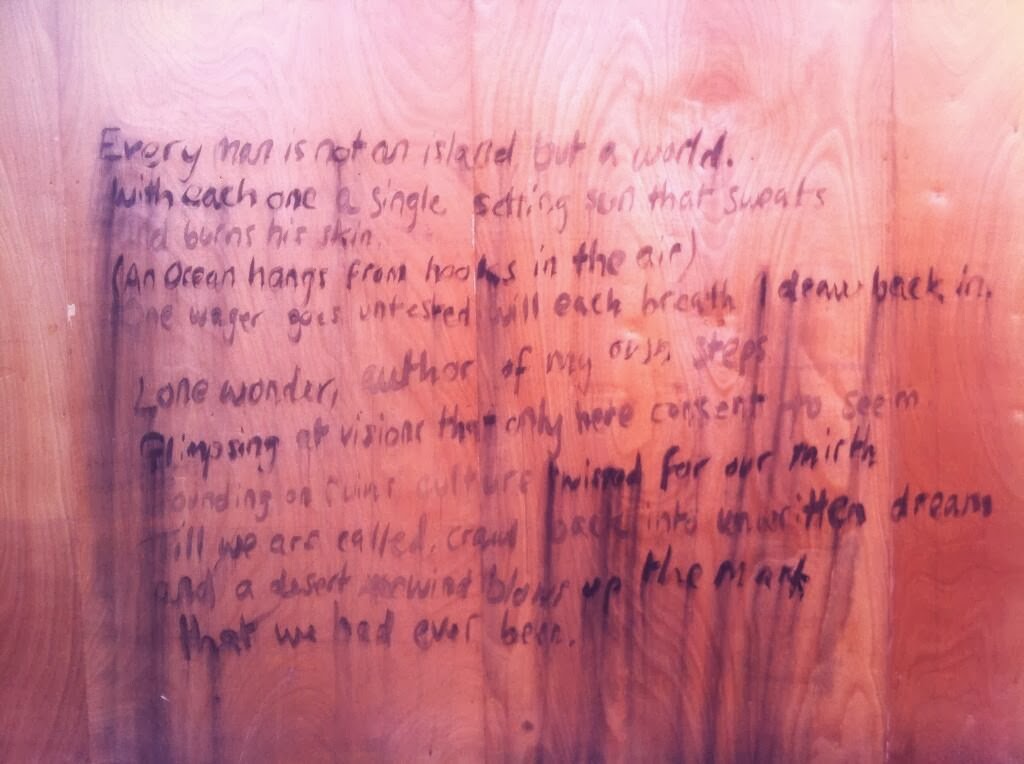 Every man is not an island, but a world.
With each one a single setting sun that sweats
and burns his skin.
(An Ocean hangs from hooks in the air)
One wager goes untested will each breath I draw back in.
Lone wonder, author of my own steps
Glimpsing at visions that only here consent to seem
ounding on ruins culture for our mirth
Till we are called, crawl back into unwritten dream
and a desert wind blows up the mark
that we had ever been.